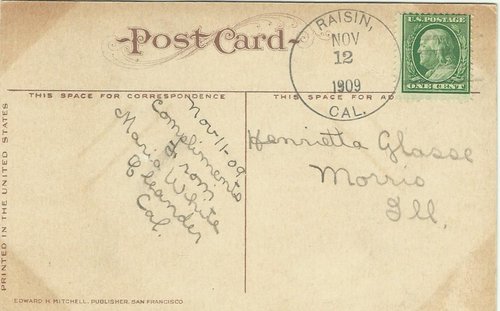 Post Card
RAISIN,
NOV
12
1909
CAL.
U.S. POSTAGE
ONE CENT
THIS SPACE FOR CORRESPONDENCE
THIS SPACE FOR AD
Nov-11-09,
Compliments
From
Maria White
Oleander
Cal.
Henrietta Glasse
Morris
Ill.
PRINTED IN THE UNITED STATES
EDWARD H. MITCHELL, PUBLISHER, SAN FRANCISCO